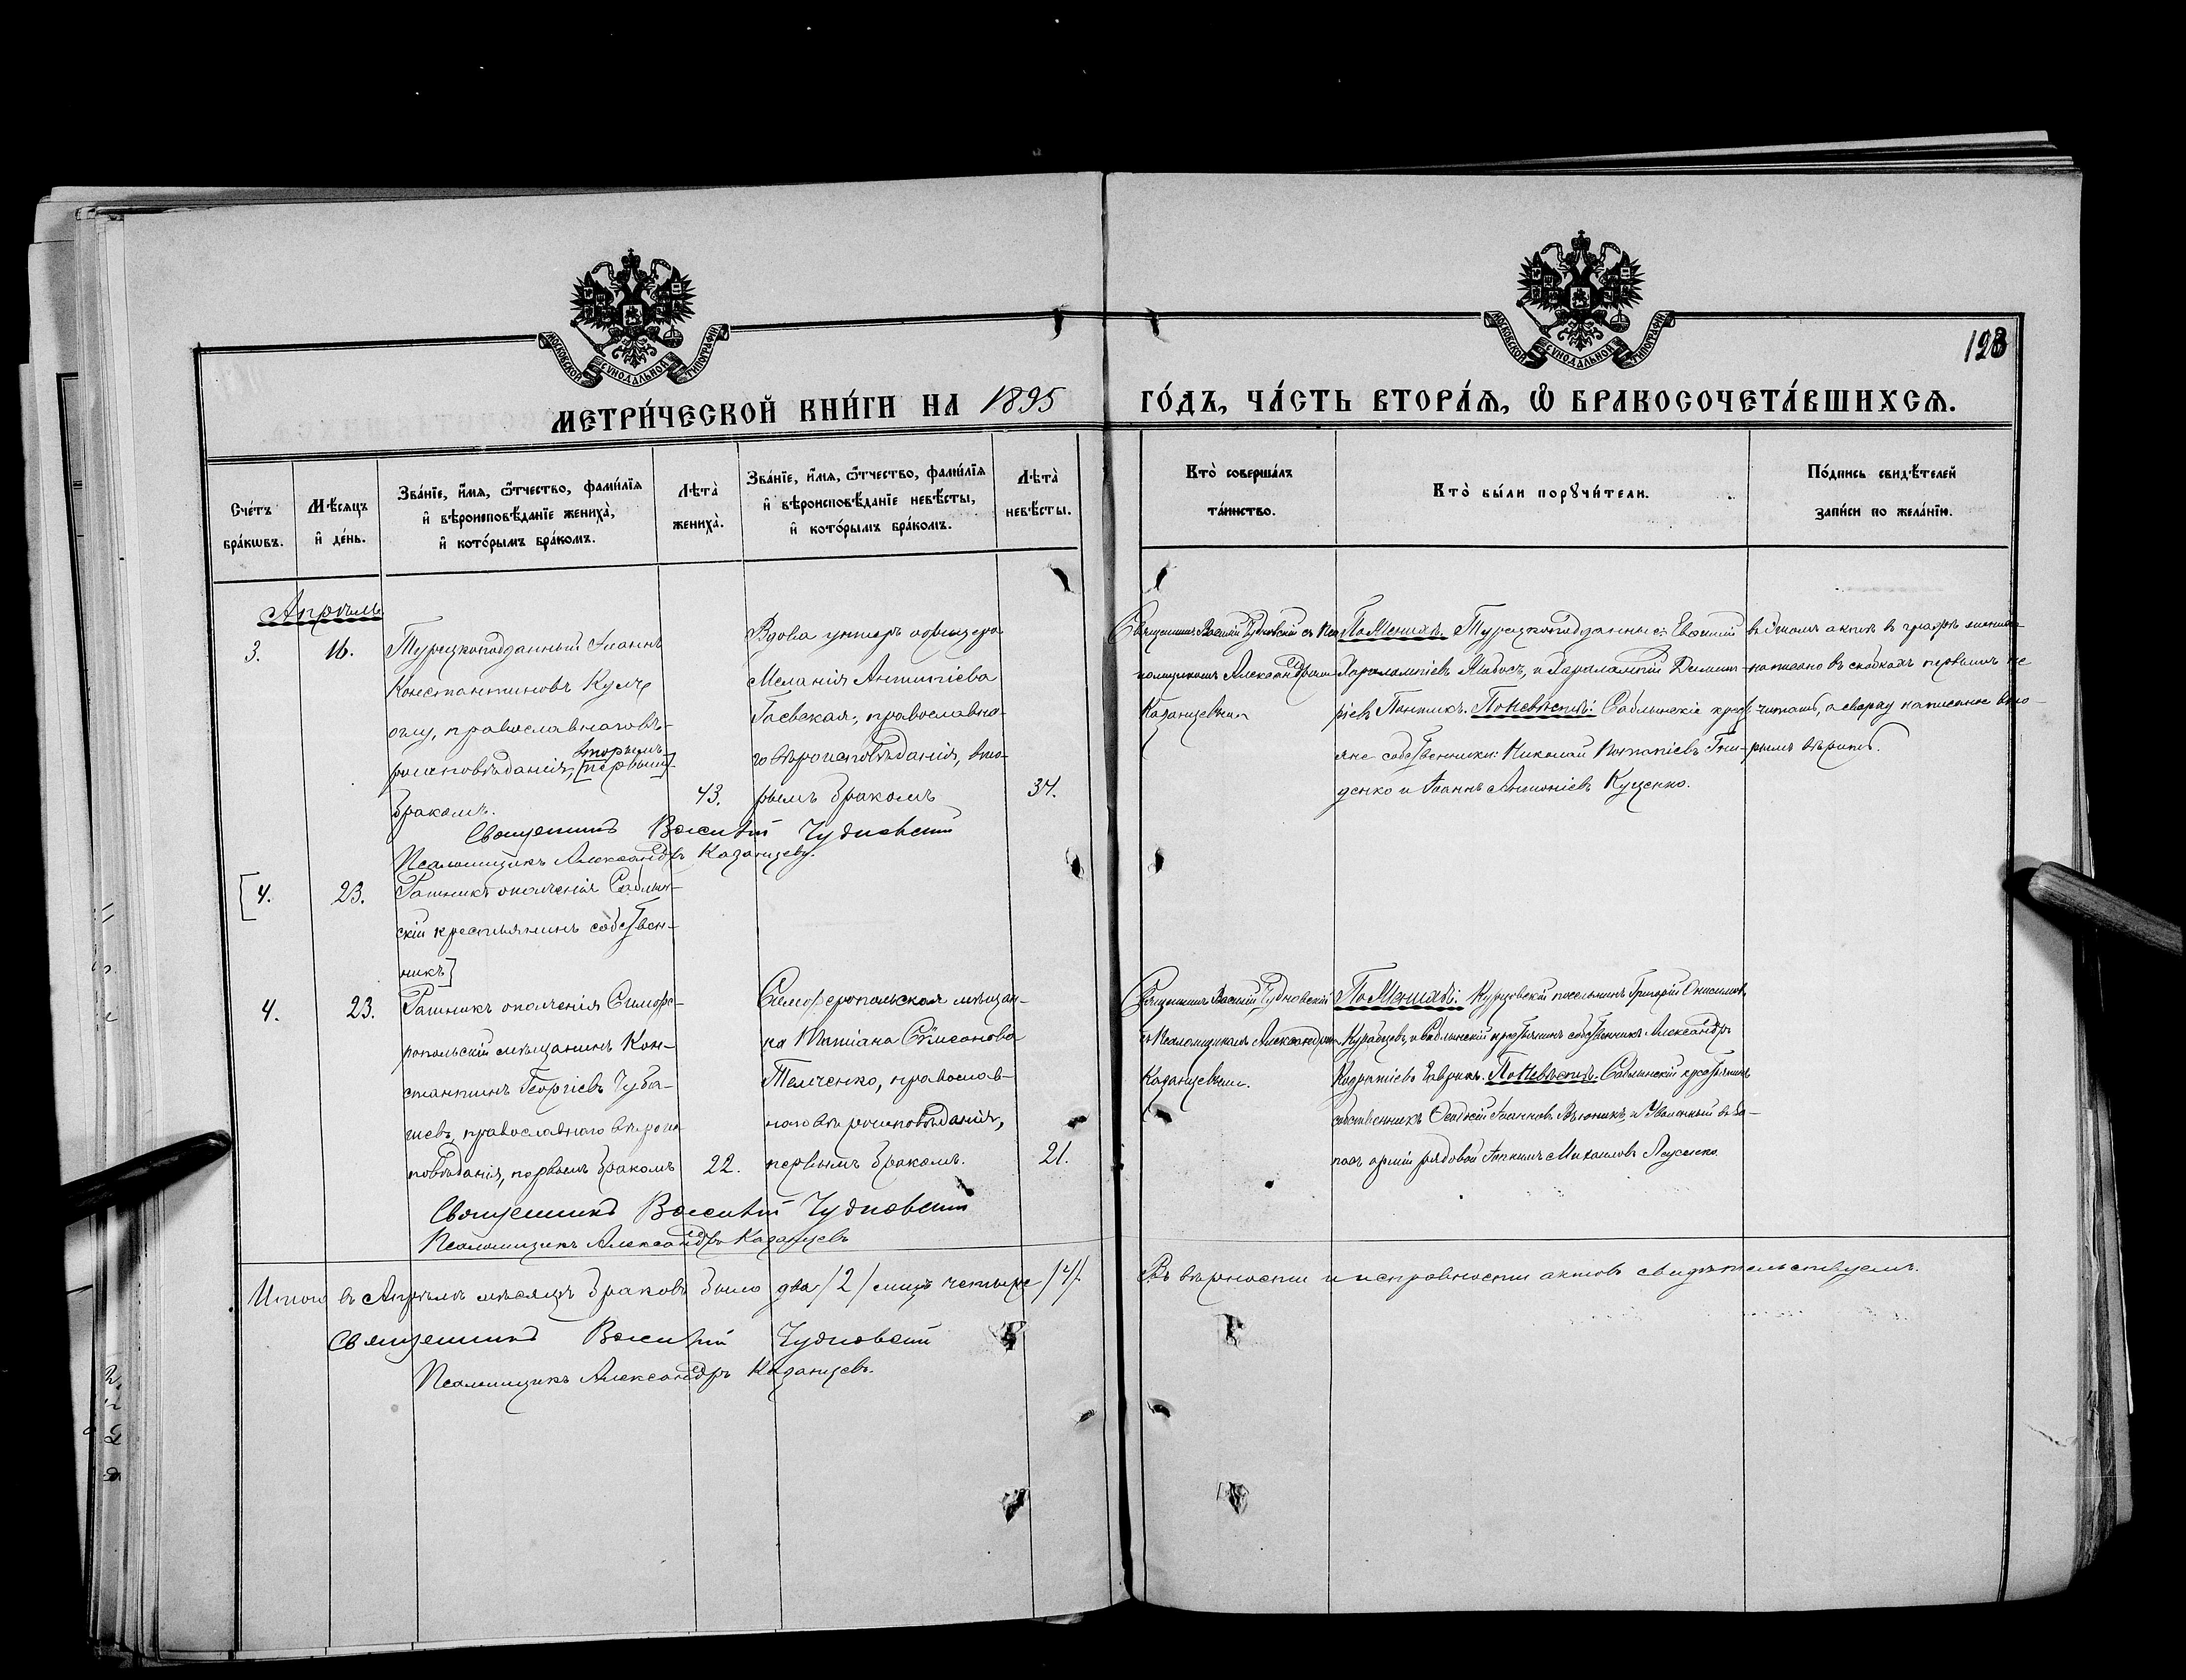 МОСКОВСКОЙ СѴНОДАЛЬНОЙ ТИПОГРАФІИ
МОСКОВСКОЙ СѴНОДАЛЬНОЙ ТИПОГРАФІИ
128
МЕТРИ́ЧЕСКОЙ КНИ́ГИ НА 1895 ГО́ДЪ, ЧА́СТЬ ВТОРА́Ѧ, Ѡ҆ БРАКОСОЧЕТА́ВШИХСѦ.
Сче́тъ
бра́кѡвъ.
Мѣ́сяцъ
и҆ де́нь.
Зва́нїе, и҆́мѧ, ѻ҆́тчество, фами́лїѧ
и҆ вѣроисповѣ́данїе жениха̀,
и҆ кото́рымъ бра́комъ.
Лѣта̀
жениха̀.
Зва́нїе, и҆́мѧ, ѻ҆́тчество, фами́лїѧ
и҆ вѣроисповѣ́данїе невѣ́сты,
и҆ кото́рымъ бра́комъ.
Лѣта̀
невѣ́сты.
Кто̀ соверша́лъ
та́инство.
Кто̀ бы́ли порꙋчи́тели.
По́дпись свидѣ́телей
за́писи по жела́нїю.
Апрѣль
3.
16.
Турецкоподданный Іоаннъ
Константиновъ
оглу, православнаго вѣ-
роисповѣданія, вторымъ
[первымъ]
бракомъ.
43.
Вдова унтеръ офицера
Меланія Антипіева
Гаевская, православна-
го вѣроисповѣданія, вто-
рымъ бракомъ
34.
Священникъ Василій Чудновскій съ Пса
ломщикомъ Александромъ
Казанцевымъ
По Женихѣ. Турецкоподданные: Евѳимій
Харалампіевъ и Харалампій Димит-
ріевъ По Невѣстѣ: Саблынскіе кресть
яне собственники: Николай Гни-
денко и Іоаннъ Антоніевъ Куценко.
въ этомъ актѣ въ графѣ жениха
написано въ скобкахъ первымъ не
читать, а сверху написанное вто-
рымъ вѣрить.
Священникъ Василій Чудновскій
Псаломщикъ Александръ Казанцевъ.
[4.
23.
Ратникъ ополченія Саблын-
скій крестьянинъ собствен-
никъ]
4.
23.
Ратникъ ополченія Симфе-
ропольскій мѣщанинъ Кон-
стантинъ Георгіевъ Чуба-
православнаго вѣроис
повѣданія, первымъ бракомъ
22.
Симферопольская мѣщан-
ка Татіана
Телченко, православ-
наго вѣроисповѣданія,
первымъ бракомъ.
21.
Священникъ Василій Чудновскій
съ Псаломщикомъ Александромъ
Казанцевымъ.
По Женихѣ: Курцовскій поселянинъ Григорій Онисимовъ
и Саблынскій крестьянинъ собственникъ Александръ
Гаврикъ. По Невѣстѣ: Саблынскій крестьянинъ
собственникъ Іоанновъ и Уволенный въ за-
пасъ арміи рядовой Михаиловъ
Священникъ Василій Чудновскій
Псаломщикъ Александръ Казанцевъ
Итого въ Апрѣлѣ мѣсяцѣ браковъ было два /2/ лицъ четыре /4/.
Въ вѣрности и исправности актовъ свидѣтельствуемъ.
Священникъ Василій Чудновскій
Псаломщикъ Александръ Казанцевъ.